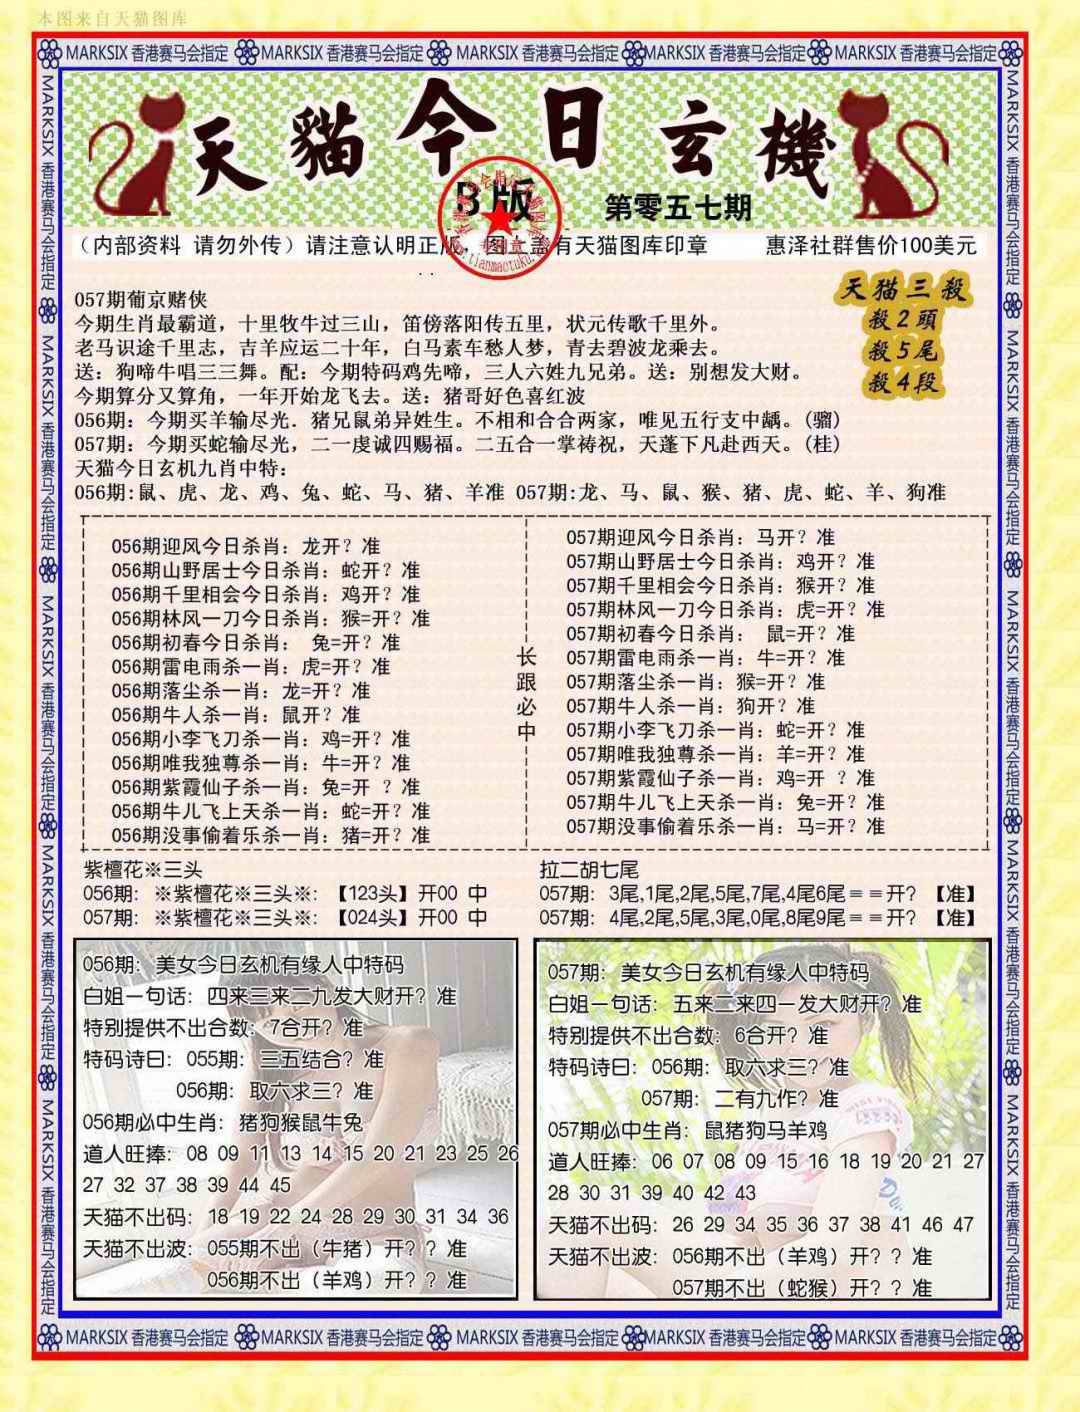 本图来自天猫图库
MARKSIX 香港赛马会指定 MARKSIX 香港赛马会指定 MARKSIX 香港赛马会指定 MARKSIX 香港赛马会指定 MARKSIX 香港赛马会指定
天貓今日玄機
B版
第零五七期
（内部资料 请勿外传）请注意认明正版，图上盖有天猫图库印章 惠泽社群售价100美元
天猫三殺
殺2頭
殺5尾
殺4段
057期葡京赌侠
今期生肖最霸道，十里牧牛过三山，笛傍落阳传五里，状元传歌千里外。
老马识途千里志，吉羊应运二十年，白马素车愁人梦，青去碧波龙乘去。
送：狗啼牛唱三三舞。配：今期特码鸡先啼，三人六姓九兄弟。送：别想发大财。
今期算分又算角，一年开始龙飞去。送：猪哥好色喜红波
056期：今期买羊输尽光．猪兄鼠弟异姓生。不相和合合两家，唯见五行支中龋。(骝)
057期：今期买蛇输尽光，二一虔诚四赐福。二五合一掌祷祝，天蓬下凡赴西天。(桂)
天猫今日玄机九肖中特：
056期:鼠、虎、龙、鸡、兔、蛇、马、猪、羊准 057期:龙、马、鼠、猴、猪、虎、蛇、羊、狗准
056期迎风今日杀肖：龙开？准
056期山野居士今日杀肖：蛇开？准
056期千里相会今日杀肖：鸡开？准
056期林风一刀今日杀肖：猴=开？准
056期初春今日杀肖： 兔=开？准
056期雷电雨杀一肖：虎=开？准
056期落尘杀一肖：龙=开？准
056期牛人杀一肖：鼠开？准
056期小李飞刀杀一肖：鸡=开？准
056期唯我独尊杀一肖：牛=开？准
056期紫霞仙子杀一肖：兔=开 ？准
056期牛儿飞上天杀一肖：蛇=开？准
056期没事偷着乐杀一肖：猪=开？准
长跟必中
057期迎风今日杀肖：马开？准
057期山野居士今日杀肖：鸡开？准
057期千里相会今日杀肖：猴开？准
057期林风一刀今日杀肖：虎=开？准
057期初春今日杀肖： 鼠=开？准
057期雷电雨杀一肖：牛=开？准
057期落尘杀一肖：猴=开？准
057期牛人杀一肖：狗开？准
057期小李飞刀杀一肖：蛇=开？准
057期唯我独尊杀一肖：羊=开？准
057期紫霞仙子杀一肖：鸡=开 ？准
057期牛儿飞上天杀一肖：兔=开？准
057期没事偷着乐杀一肖：马=开？准
紫檀花※三头
056期：※紫檀花※三头※:【123头】开00 中
057期：※紫檀花※三头※:【024头】开00 中
拉二胡七尾
057期：3尾,1尾,2尾,5尾,7尾,4尾6尾＝＝开？【准】
057期：4尾,2尾,5尾,3尾,0尾,8尾9尾＝＝开？【准】
056期：美女今日玄机有缘人中特码
白姐一句话：四来三来二九发大财开？准
特别提供不出合数：7合开？准
特码诗曰：055期：三五结合？准
056期：取六求三？准
056期必中生肖：猪狗猴鼠牛兔
道人旺捧：08 09 11 13 14 15 20 21 23 25 26
27 32 37 38 39 44 45
天猫不出码：18 19 22 24 28 29 30 31 34 36
天猫不出波：055期不出（牛猪）开？？准
056期不出（羊鸡）开？？准
057期：美女今日玄机有缘人中特码
白姐一句话：五来二来四一发大财开？准
特别提供不出合数：6合开？准
特码诗曰：056期：取六求三？准
057期：二有九作？准
057期必中生肖：鼠猪狗马羊鸡
道人旺捧：06 07 08 09 15 16 18 19 20 21 27
28 30 31 39 40 42 43
天猫不出码：26 29 34 35 36 37 38 41 46 47
天猫不出波：056期不出（羊鸡）开？？准
057期不出（蛇猴）开？？准
MARKSIX 香港赛马会指定 MARKSIX 香港赛马会指定 MARKSIX 香港赛马会指定 MARKSIX 香港赛马会指定 MARKSIX 香港赛马会指定
MARKSIX 香港赛马会指定 MARKSIX 香港赛马会指定 MARKSIX 香港赛马会指定 MARKSIX 香港赛马会指定 MARKSIX 香港赛马会指定
MARKSIX 香港赛马会指定 MARKSIX 香港赛马会指定 MARKSIX 香港赛马会指定 MARKSIX 香港赛马会指定 MARKSIX 香港赛马会指定